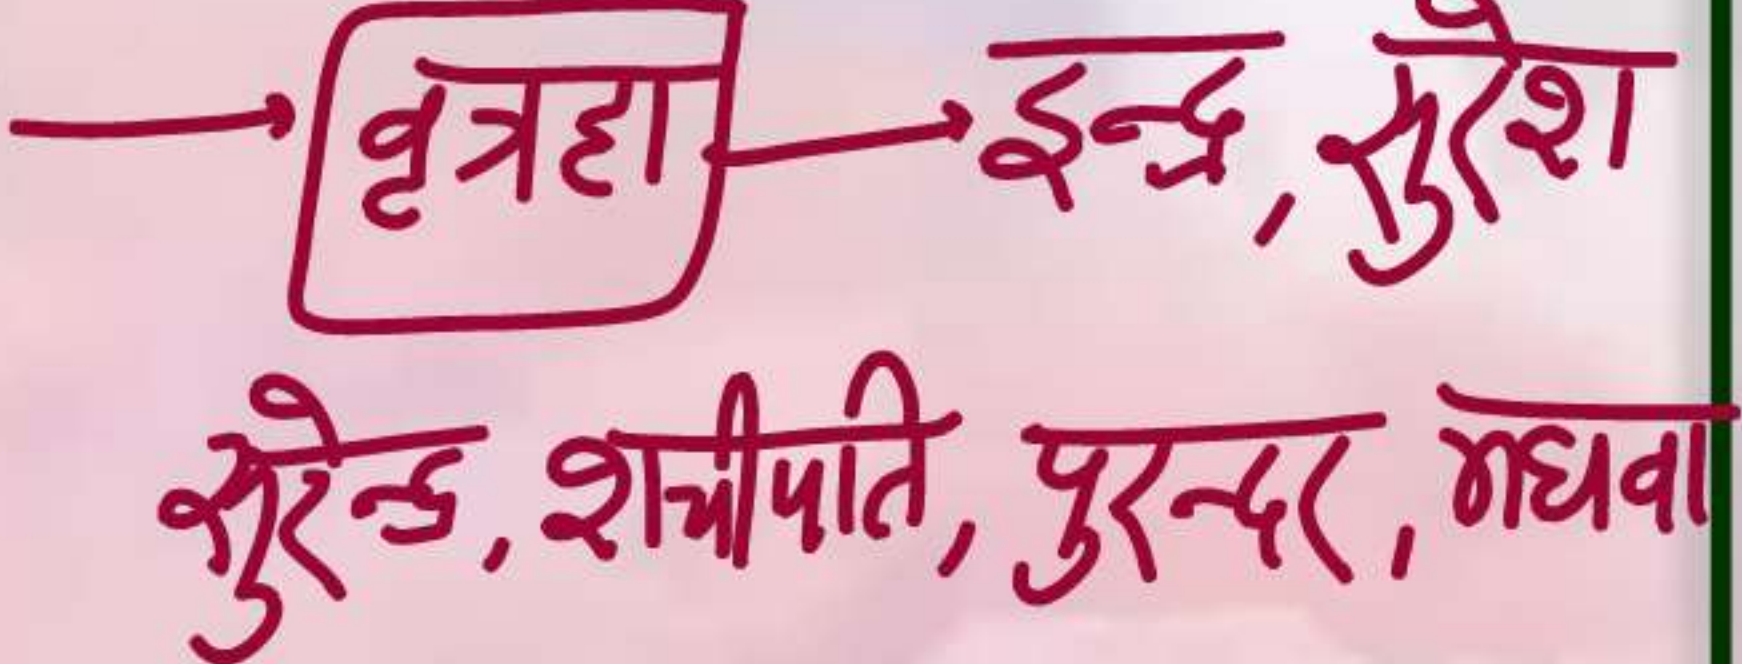 → वृत्रहा → इन्द्र, सुरेश
सुरेन्द्र, शचीपति, पुरन्दर, मघवा